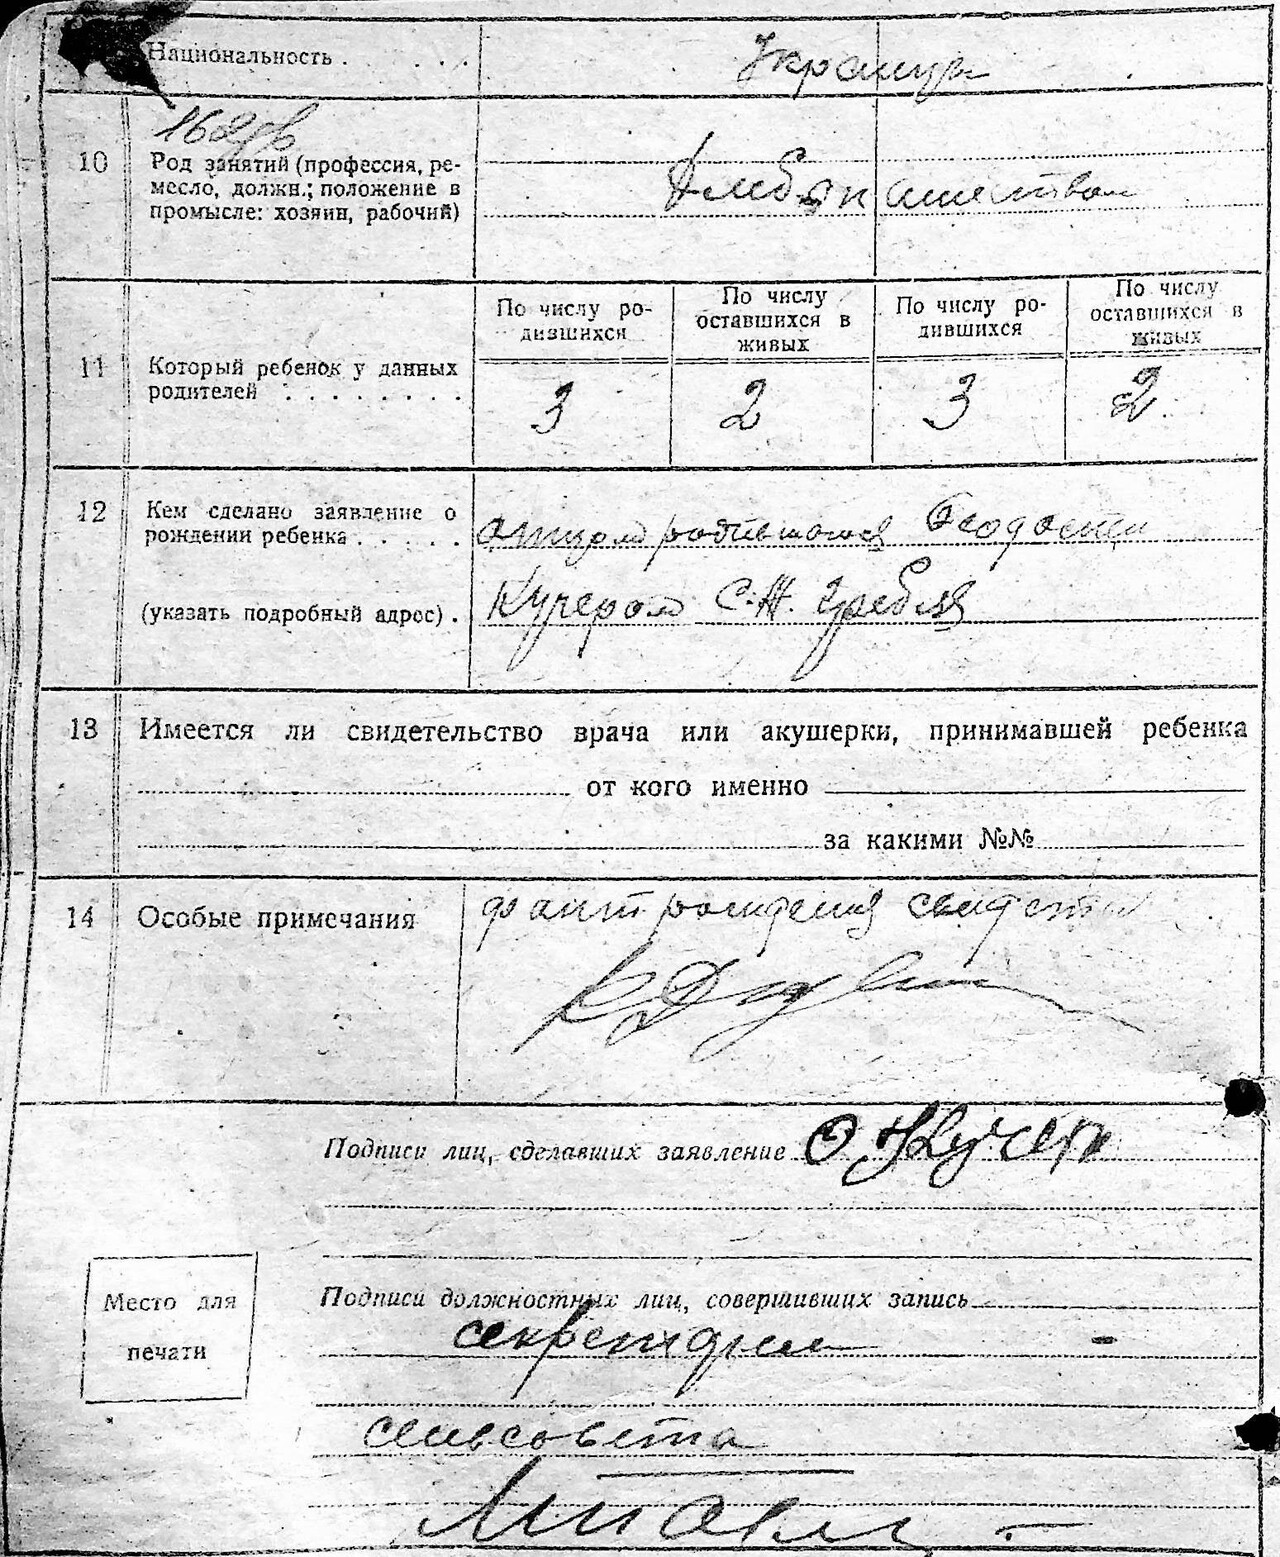 Национальность . . . .
Украинцы
10
Род занятий (профессия, ре-
месло, должн.; положение в
промысле: хозяин, рабочий)
Хлебопашеством
11
Который ребенок у данных
родителей . . . . . . . .
По числу ро-
дившихся
По числу
оставшихся в
живых
По числу ро-
дившихся
По числу
оставшихся в
живых
3
2
3
2
12
Кем сделано заявление о
рождении ребенка . . . . .
(указать подробный адрес) .
отцом родившагося Феодосием
Кучером С.-Ж. Гребля
13
Имеется ли свидетельство врача или акушерки, принимавшей ребенка
от кого именно
за какими №№
14
Особые примечания
факт рождения свидет
Подписи лиц, сделавших заявление
Подписи должностных лиц, совершивших запись
секретарем
сельсовета
Место для
печати